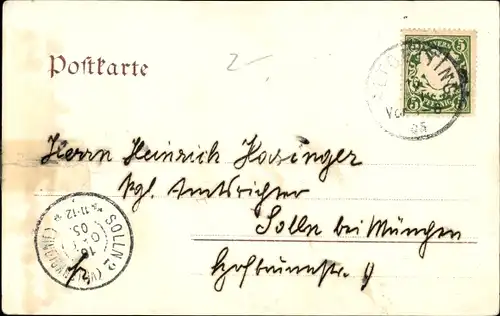 Postkarte
2-
BAYERN
5 5
PFENNIG
VOR
05
Herrn Heinrich Hasinger
kgl. Amtsrichter
Solln bei München
Hofbrunnstr. 9
SOLLN 2
11-12
16
05